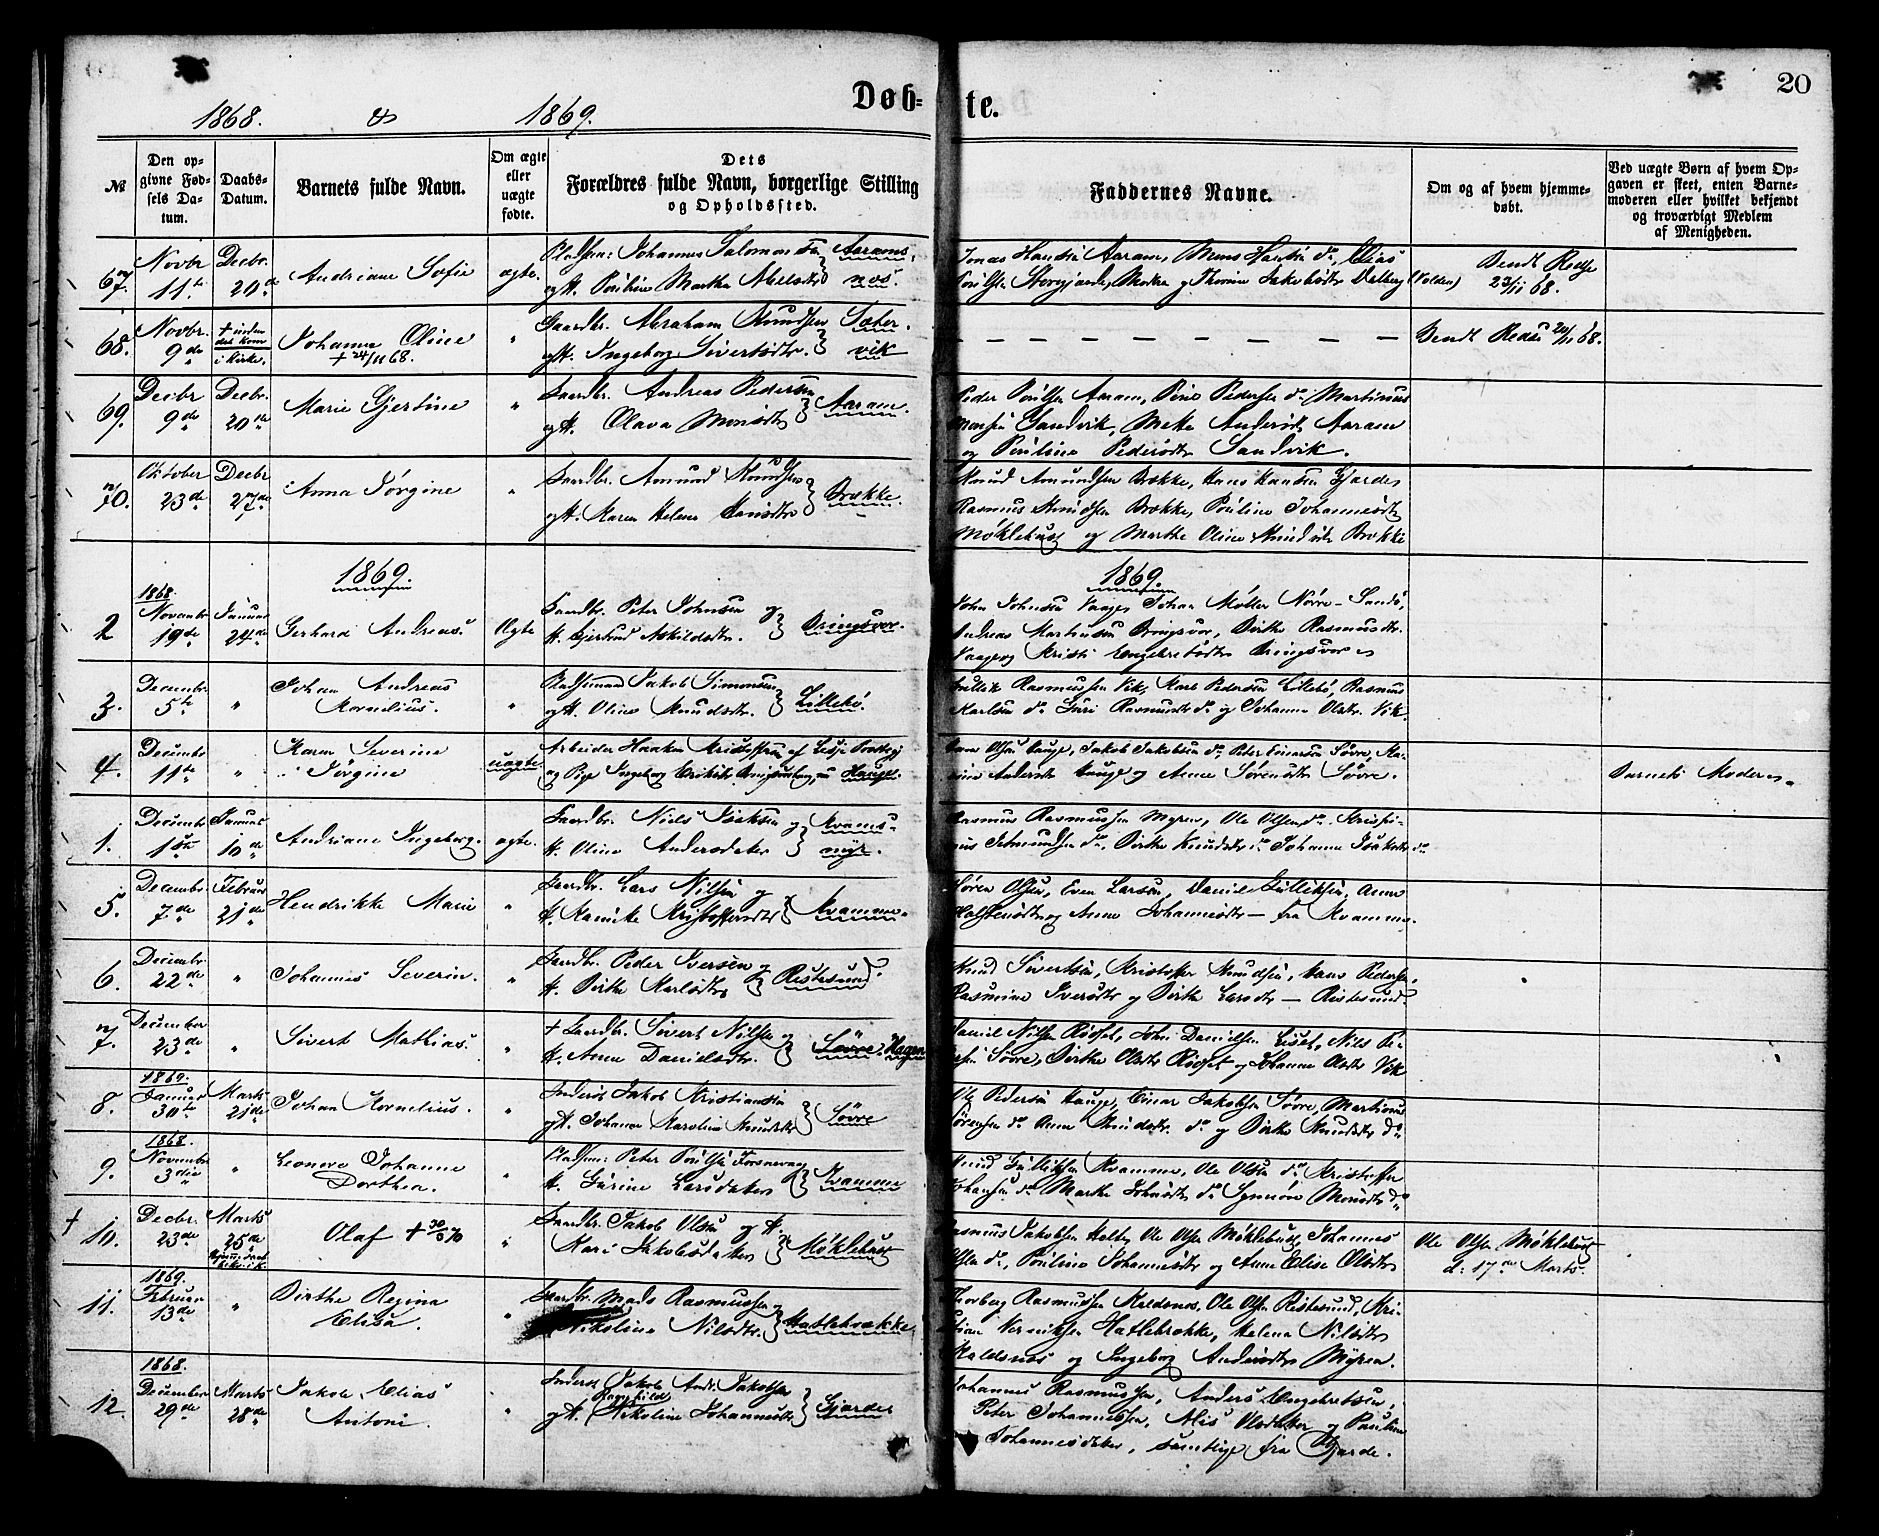 20
1868. & 1869.
Døb=te.
№
Den opgivne Fødsels Datum.
Daabs-Datum.
Barnets fulde Navn.
Om ægte eller uægte fødte.
Dets Forældres fulde Navn, borgerlige Stilling og Opholdssted.
Faddernes Navne.
Om og af hvem hjemmedøbt.
Ved uægte Børn af hvem Opgaven er skeet, enten Barnemoderen eller hvilket bekjendt og troværdigt Medlem af Menigheden.
67. Novbr 11te Decbr. 20de Andriane Sofie ægte. Johannes Salomonsen Aarams-
og H. Martha nes.
Jonas Hansen Aaram, Mons Hansen do, Elias
Bendt Redse 23/11 68.
68. Novbr. 9de + inden det kom i Kirke. Johanne Oline + 24/11 68. " Gaardbr. Abraham Knudsen Sæter-
og H. Ingeborg Sivertsdtr. vik
Bendt Redse 20/11 68.
69. Decbr 9de Decbr. 20de Marie Gjertine " Gaardbr. Andreas Pedersen
og H. Olava Monsdtr Aaram.
Peder Poulsen Aaram, Pedersen do, Martinus
Monsen Sandvik, Mette Andersdtr Aaram
og Pouline Pedersdtr Sandvik.
70. Oktober 23de Decbr 27de Anna Jørgine " Gaardbr. Amund Knudsen
og H. Karen Helene Hansdtr Brække.
Knud Amundsen Brække, Hans Hansen Gjerde,
Rasmus Knudsen Brække, Pouline Johannesdtr
Møklebust og Marthe Oline Brække
1869.
1869.
2 1868. Novembr 19de Januar 24de Gerhard Andreas Ægte Gaardbr. Peter Johnsen og
H. Gjertrud Askildsdtr. Bringsvor.
John Johnsen Vaage, Johan Møller Nørre-Sandø,
Andreas Martinsen Bringsvor, Birthe Rasmusdtr.
Vaage og Kristi Engebretsdtr Bringsvor
3. Decembr. 5te " Johan Andreas
Kornelius. " Pladsmand Jakob Simonsen
og H. Oline Knudsdtr. Lillebø.
Gullik Rasmussen Vik, Karl Pedersen Lillebø, Rasmus
Karlsen do Guri Rasmusdtr do og Johanne Olsdtr. Vik.
4. Decembr 11te " Karen Severine
Jørgine uægte. Arbeider Haaken Kristoffersen af Lesje
og Pige Ingeborg Eriksdtr Hauge.
Olsen Hauge, Jakob Jakobsen do Peter Einarsen Søvre,
Andersdtr Hauge og Anne Sørensdtr Søvre.
Barnets Moder
1. Decembr 1ste Januar 10de Andriane Ingeborg. ægte. Gaardbr. Niels Isaksen og Kvams-
H. Oline Andersdatter myr.
Rasmus Rasmussen Myren, Ole Olsen do.
Birthe Knudsdtr do Johanne Isaksdtr do
5. Decembr. 7de Februar 21de Hendrikke Marie " Gaardbr. Lars Nilsen og
H. Kristoffersdtr Kvamme.
Søren Olsen, Even Larsen, Daniel Gulliksen, Anne
og Anne Johannesdtr — fra Kvamme.
6. Decembr. 22de " Johannes Severin. " Gaardbr. Peder Iversen og
H. Birthe Karlsdtr Ristesund.
Knud Sivertsen, Kristoffer Knudsen, Hans Pedersen,
Rasmine Iversdtr og Birthe Larsdtr — Ristesund.
7. December 23de " Sivert Mathias. " + Gaardbr. Sivert Nilsen og
H. Anne Danielsdtr. Søvre. Hagen
Daniel Nilsen Rødset, John Danielsen Liset, Nils Pe-
Søvre, Birthe Olsdtr Rødset og Johanne Olsdtr Vik
8. 1869. Januar 30te Marts 21de Johan Kornelius. " Inderst Jakob Kristiansen
og H. Johanne Karoline Knudsdtr Søvre
Ole Pedersen Hauge, Einar Jakobsen Søvre, Martinus
Sørensen do Anne Knudsdtr. do og Birthe Knudsdtr do
9. 1868. Novembr 3die " Leonore Johanne
Dorthea. " Pladsm: Peter Poulsen
H. Gurine Larsdatter Kvamme
Knud Gulliksen Kvamme, Ole Olsen do Kristoffer
Johansen do Marthe Johnsdtr do Synnöve Monsdtr do
+ 10. Decbr. 23de Marts 25de Olaf + 30/6 70 " Gaardbr. Jakob Olsen og H.
Kari Jakobsdatter Møklebust
Rasmus Jakobsen Holby, Ole Olsen Møklebust, Johannes
Olsen do, Pouline Johannesdtr og Anne Elise Olsdtr
Ole Olsen Møklebust
d: 17de Marts.
11. 1869. Februar 13de " Birthe Regina
Elisa. " Gaardbr. Mads Rasmussen
Nikoline Nilsdtr. Hatlebrække
Thorberg Rasmussen Kaldsnes, Ole Olsen Ristesund, Kri-
stian Hatlebrække, Helena Nilsdtr
Kaldsnes og Ingeborg Andersdtr Myren.
12. 1868. December 29de Marts 28de Jakob Elias
Antoni. " Inderst Jakob Andr. Jakobsen
Ragnhild
og H. Nikoline Johannesdtr Gjerde
Johannes Rasmussen, Anders Engebretsen,
Peter Johannessen, Olsdatter og Pauline
Johannesdatter, samtlige fra Gjerde.